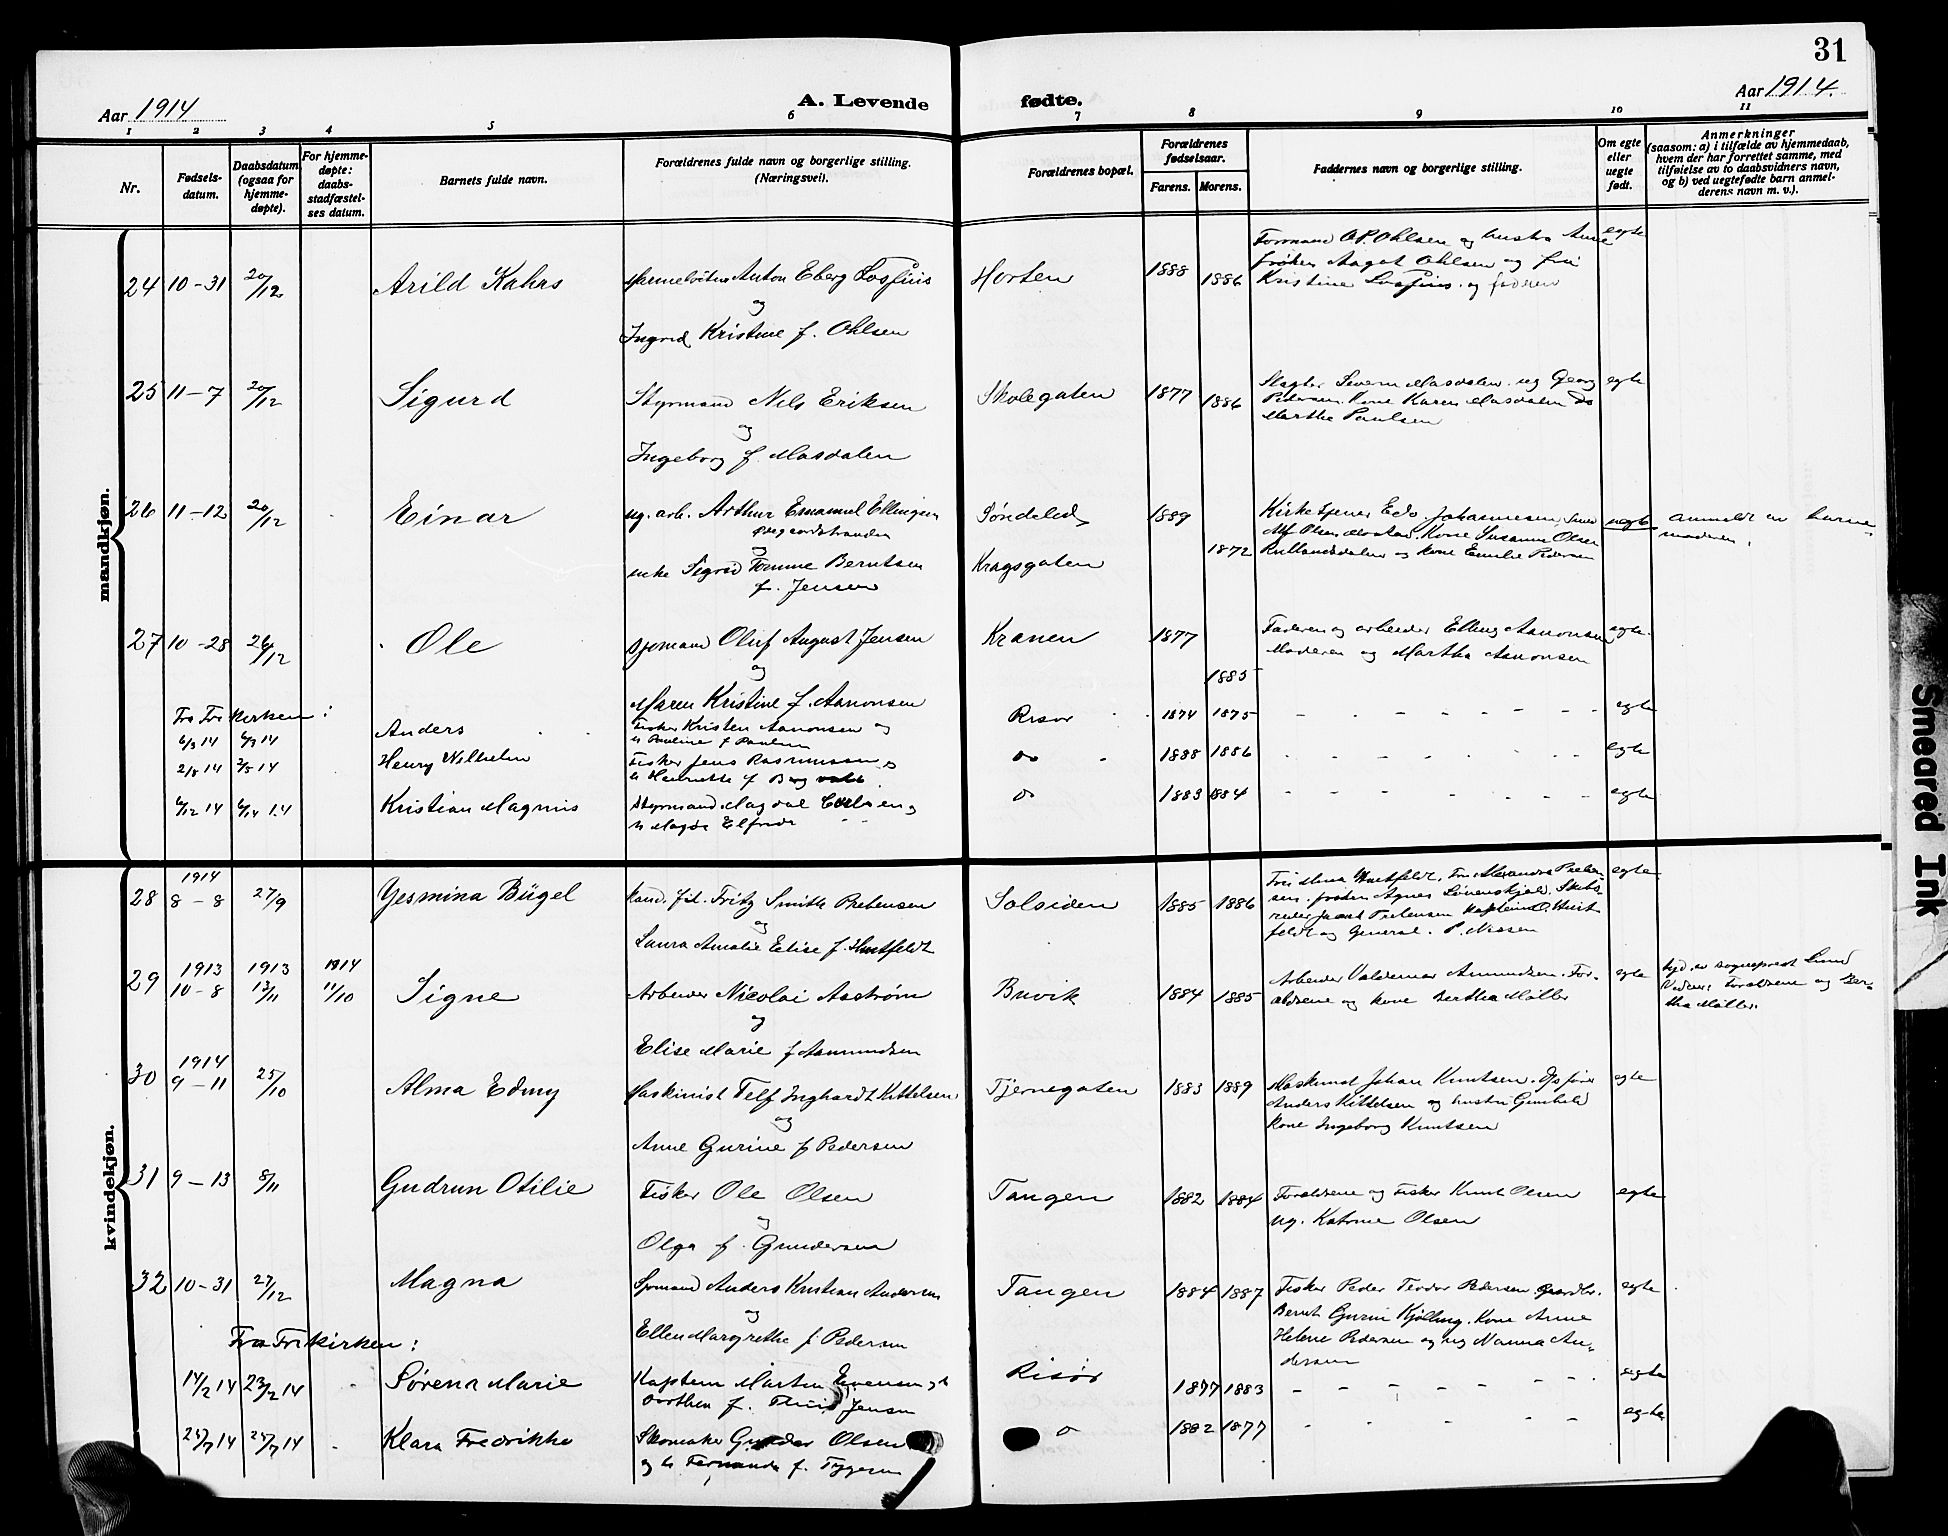 31
Aar 1914
A. Levende
fødte.
Aar 1914.
1 2 3 4 5 6 7 8 9 10 11
Nr.
Fødsels-
datum.
Daabsdatum
(ogsaa for
hjemme-
døpte).
For hjemme-
døpte:
daabs-
stadfæstel-
ses datum.
Barnets fulde navn.
Forældrenes fulde navn og borgerlige stilling.
(Næringsvei).
Forældrenes bopæl.
Forældrenes
fødselsaar.
Farens. Morens.
Faddernes navn og borgerlige stilling.
Om egte
eller
uegte
født.
Anmerkninger
(saasom: a) i tilfælde av hjemmedaab,
hvem der har forrettet samme, med
tilføielse av to daabsvidners navn,
og b) ved uegtefødte barn anmel-
derens navn m. v.).
mandkjøn.
24 10-31 20/12 Arild Kahrs
Anton Eberg
og
Ingrid Kristine f. Ohlsen
Horten 1888 1886
Formand O.P. Ohlsen og hustru Anne
frøken Aagot Ohlsen og
Kristine og faderen
egte
25 11-7 20/12 Sigurd
Styrmand Nils Eriksen
og
Ingeborg f. Masdalen
Skolegaten 1877 1886
Severin Masdalen og Georg
Pedersen Kone Karen Masdalen Do
Marthe Paulsen
egte
26 11-12 20/12 Einar
ug. arb. Arthur Emanuel Ellingsen
og
enke Sigrid Tomine Berntsen
f. Jensen
Søndeled
Kragsgaten
1889 1872
Kirketjener Edv. Johannesen,
Alf Olsen Kone Susanne Olsen
og kone Emilie Pedersen
uegte
anmeldt av barne-
moderen.
27 10-28 26/12 Ole
Sjømand Oluf August Jensen
og
Maren Kristine f. Aanonsen
Kranen 1877 1885
Faderen og arbeider Elling Aanonsen
Moderen og Martha Aanonsen
egte.
Fra Frikirken:
Anders
Fisker Kristen Aanonsen og
h Pauline f Paulsen
Risør 1874 1875 egte
2/5 14 Henry Wilhelm
Fisker Jens Rasmussen og
h Henriette f
do 1888 1886 egte
6/12 14 Kristian Magnus
Styrmand
h Magda Elfrida
do 1883 1884 egte
kvindekjøn.
1914
28 8-8 27/9 Yesmina Bügel
Kand. fil. Fritz Smith Pretensen
og
Laura Amalie Elise f. Huitfeldt
Solsiden 1885 1886
Huitfeldt. Fru Alexandra
frøken Agnes
Kaptein
feldt og General. P. Nissen
egte
1913 1913 1914
29 10-8 13/11 11/10 Signe
Arbeider Nicolai Aastrøm
og
Elise Marie f Aamundsen
Buvik 1884 1885
Arbeider Valdemar Amundsen. For-
ældrene og kone Bertha Møller
egte
hjd. av sogneprest Lund
Vidner: Forældrene og Ber-
tha Møller.
1914
30 9-11 25/10 Alma Edny
Maskinist Telf Inghardt Kittelsen
og
Anne Gurine f Pedersen
Tjernegaten 1883 1889
Maskinist Johan Knutsen.
Anders Kittelsen og hustru Gunhild
kone Ingeborg Knutsen
egte
31 9-13 8/11 Gudrun Otilie
Fisker Ole Olsen
og
Olga f. Gundersen
Tangen 1882 1884
Forældrene og Fisker Knut Olsen
ug. Katrine Olsen
egte
32 10-31 27/12 Magna
Sjømand Anders Kristian Andersen
og
Ellen Margrethe f Pedersen
Tangen 1884 1887
Fisker Peder Teodor Pedersen
Bernt Kjølling. Kone Anne
Helene Pedersen og ug Nanna An-
dersen
egte
Fra Frikirken:
14/2 14 23/2 14 Sørena Marie
Kaptein Martin Evensen
Dorthea f. Jensen
Risør 1877 1883 egte
25/7 14 25/7 14 Klara Fredrikke
Skomaker Gunder Olsen
og h Fernanda f.
1882 1877 egte
Smeared Ink